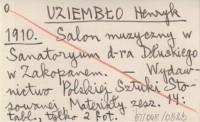 UZIEMBŁO Henryk
1910. Salon muzyczny w
Sanatoryum d-ra Dłuskiego
w Zakopanem. — Wydaw-
nictwo Polskiej Sztuki Sto-
sowanej. Materiały zesz. 14:
tabl., tylko 2 fot.